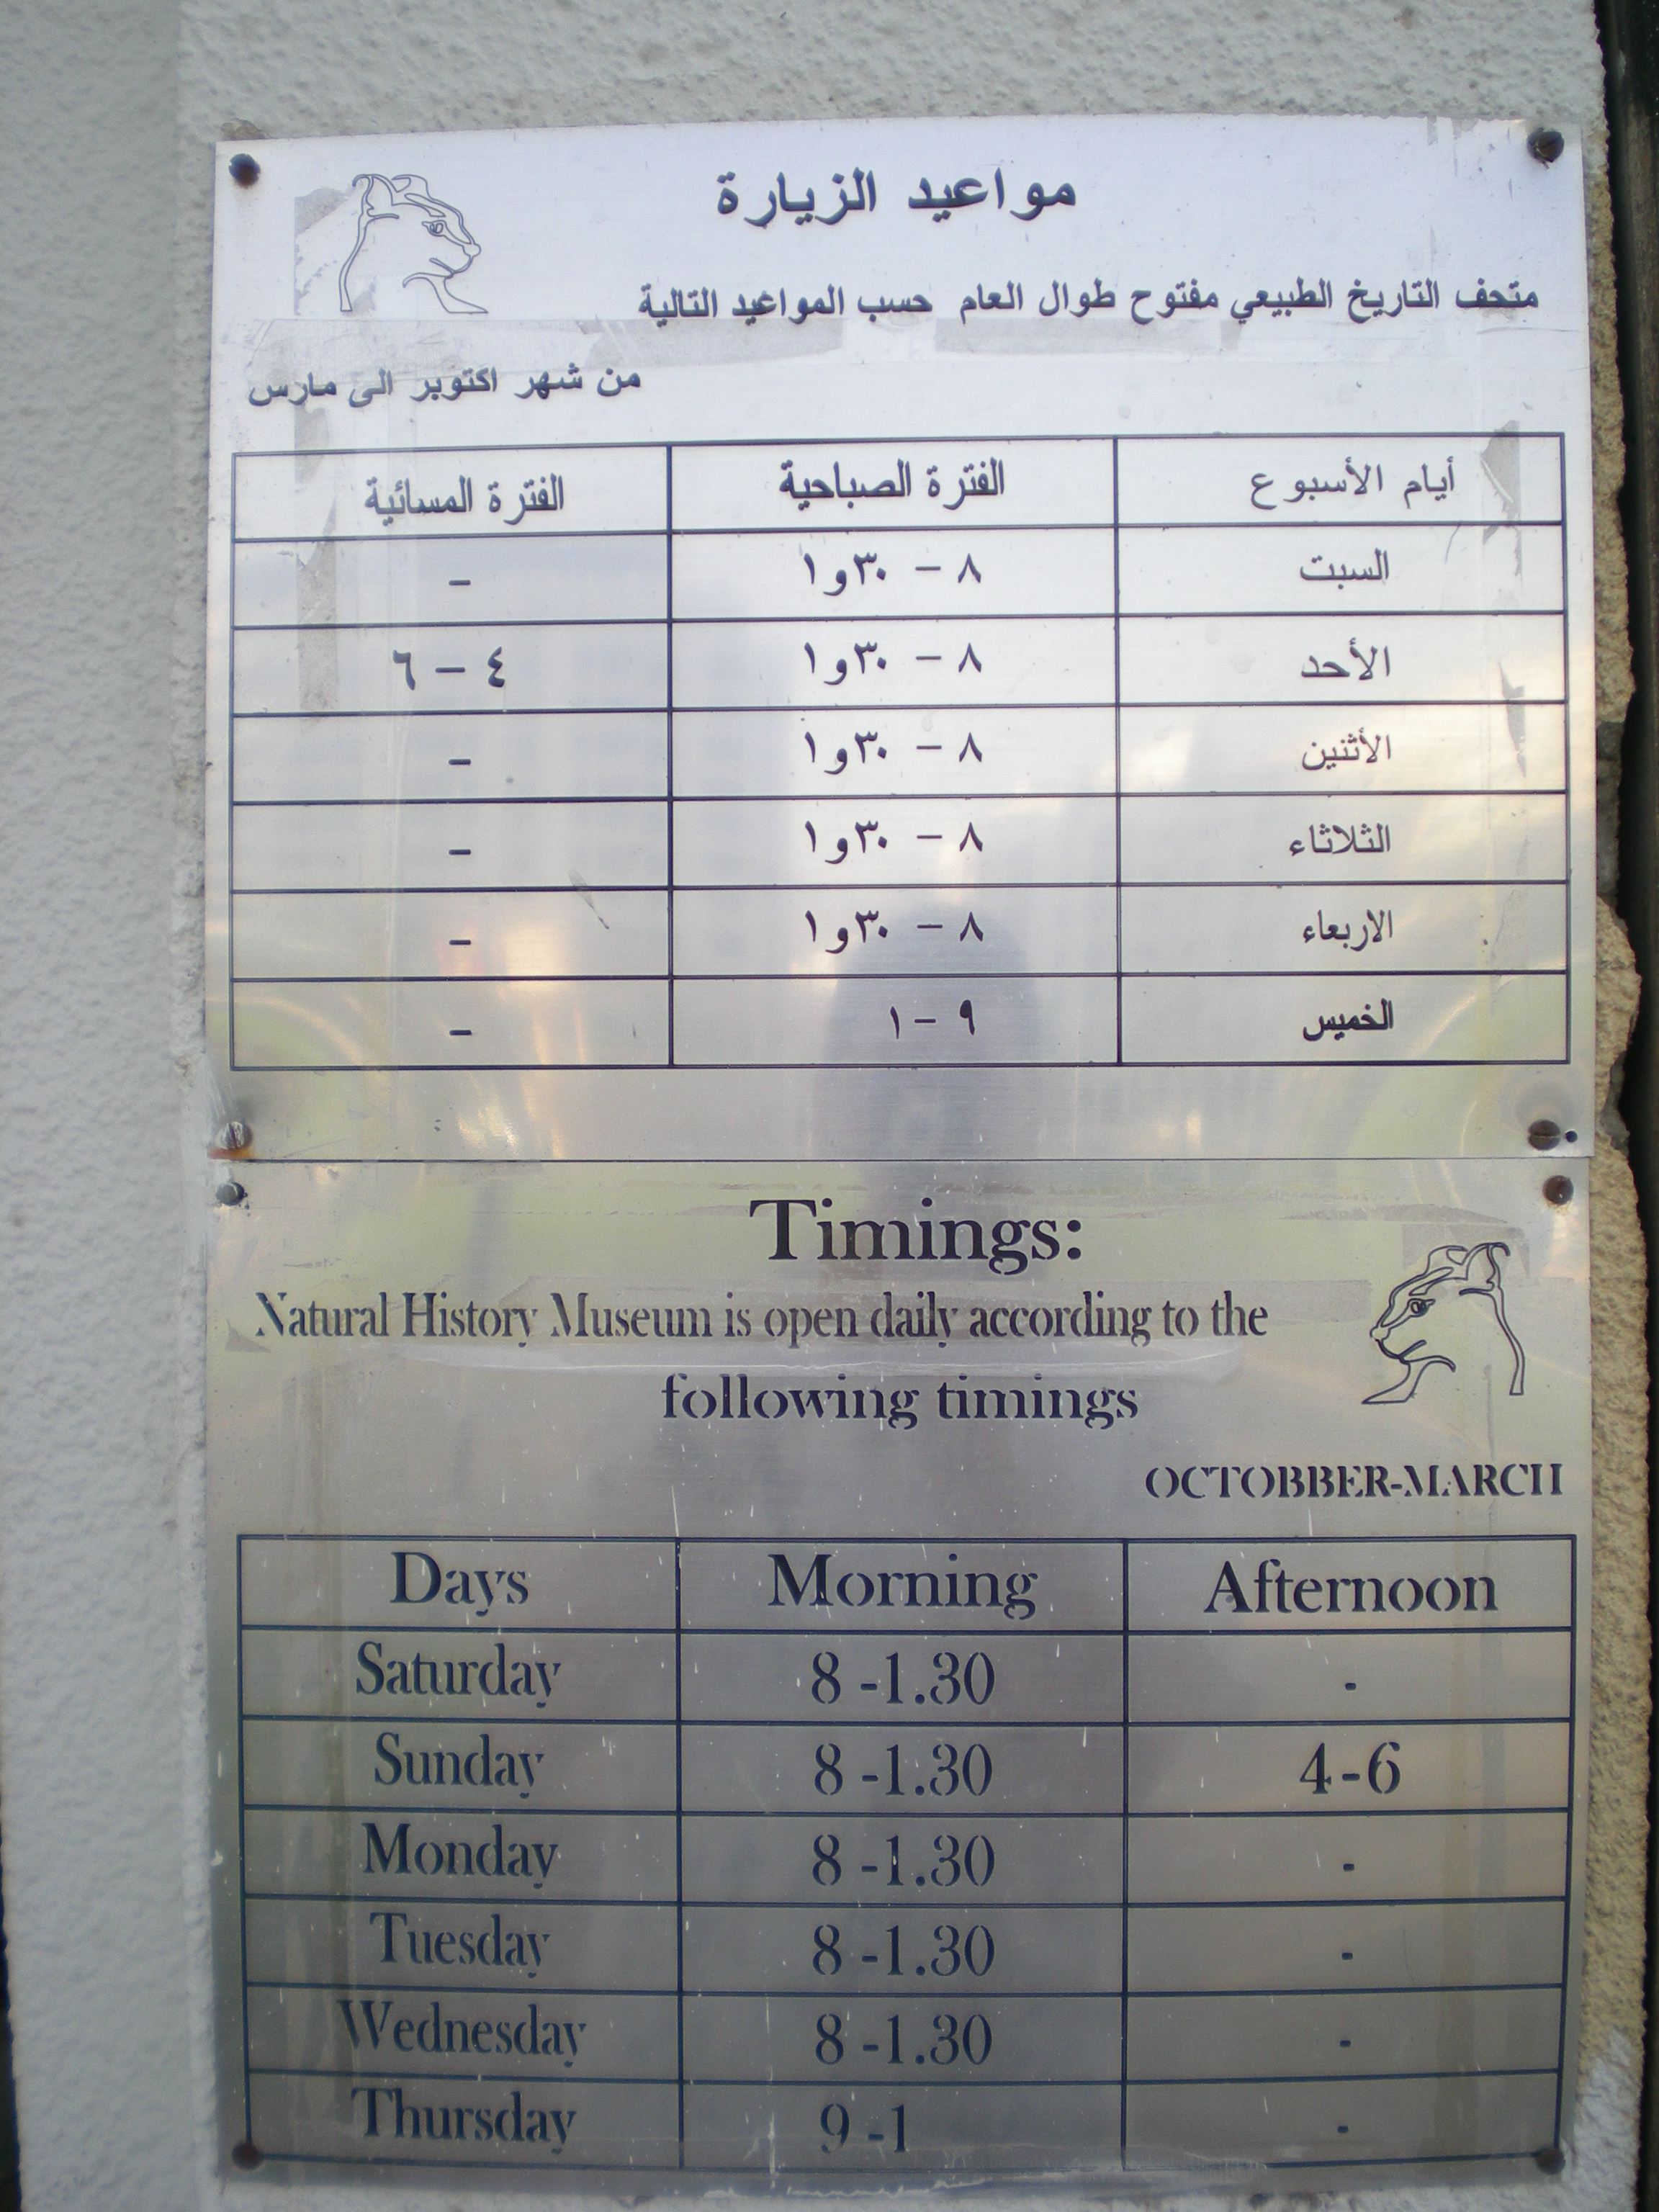 مواعيد الزيارة
متحف التاريخ الطبيعي مفتوح طوال العام حسب المواعيد التالية
من شهر اكتوبر الى مارس
أيام الأسبوع الفترة الصباحية الفترة المسائية
السبت ٨ – ٣٠و١ –
الأحد ٨ – ٣٠و١ ٤ – ٦
الأثنين ٨ – ٣٠و١ –
الثلاثاء ٨ – ٣٠و١ –
الاربعاء ٨ – ٣٠و١ –
الخميس ٩ – ١ –
Timings:
Natural History Museum is open daily according to the
following timings
OCTOBBER-MARCH
Days Morning Afternoon
Saturday 8 -1.30 -
Sunday 8 -1.30 4-6
Monday 8 -1.30 -
Tuesday 8 -1.30 -
Wednesday 8 -1.30 -
Thursday 9 -1 -